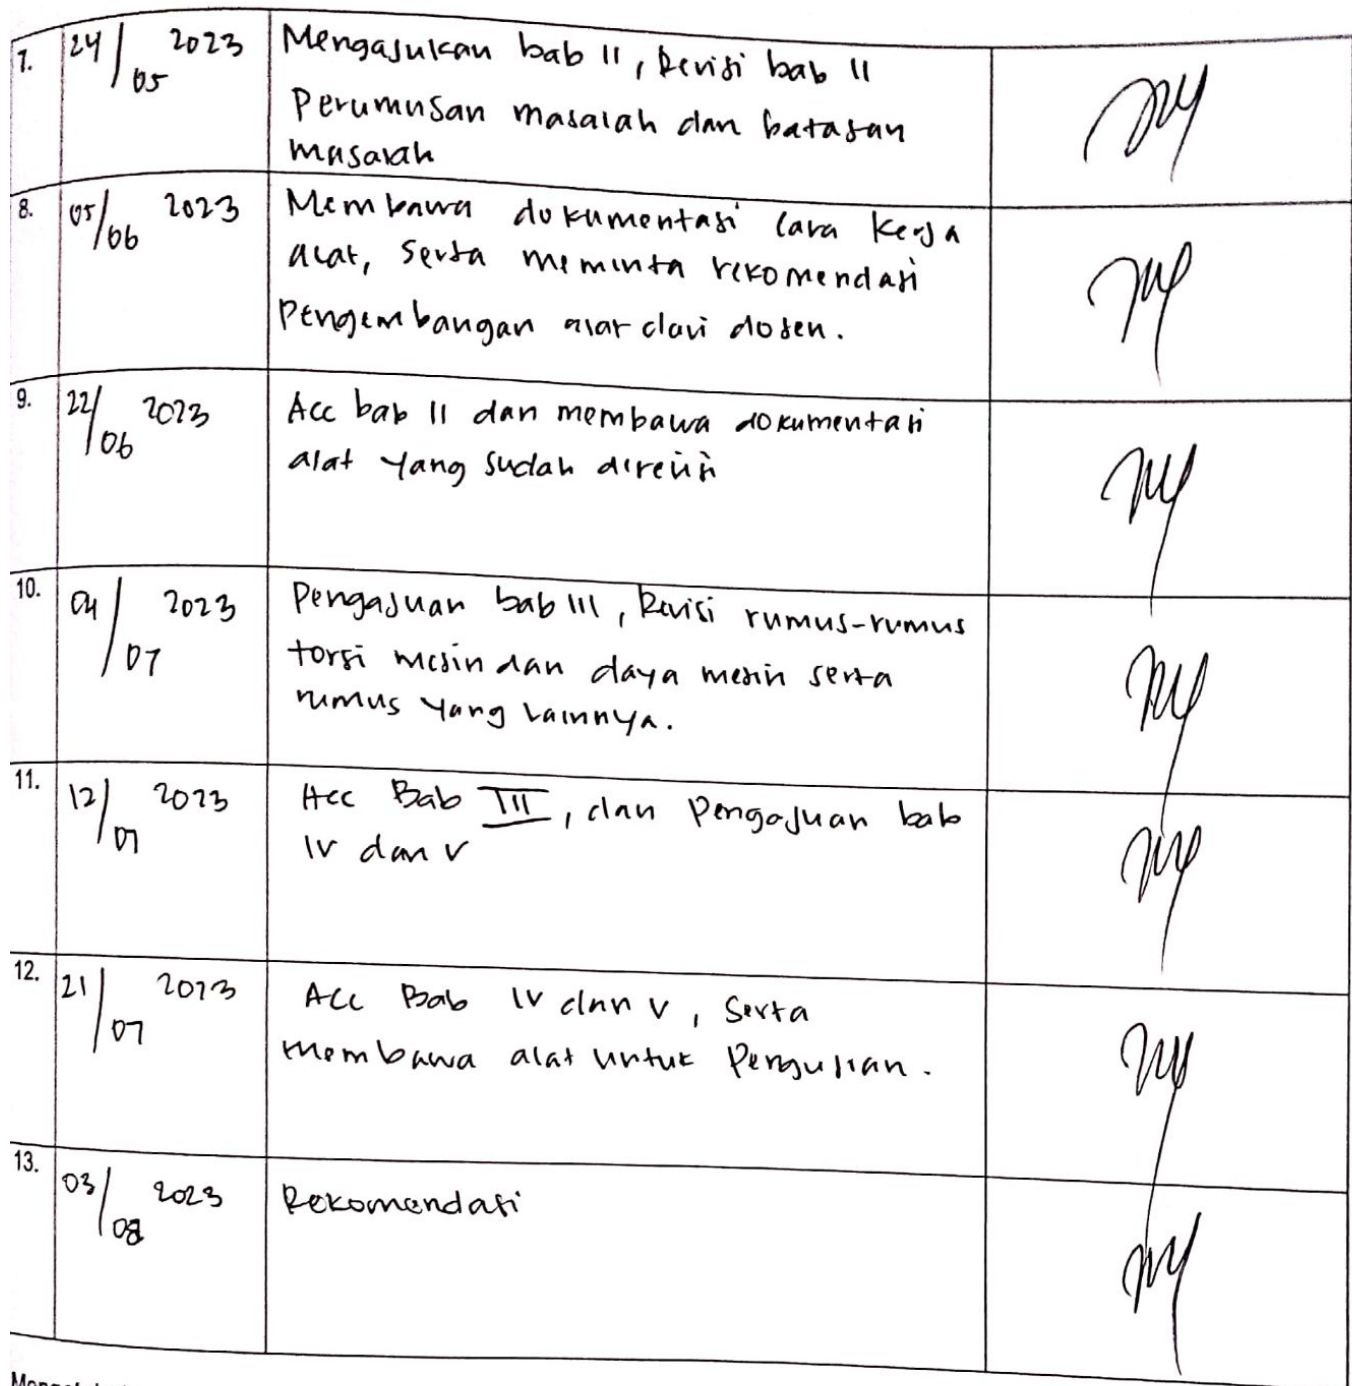 7. 24/05 2023 Mengajukan bab II, Revisi bab II
Perumusan masalah dan batasan
masalah
8. 05/06 2023 Membawa dokumentasi cara kerja
alat, serta meminta rekomendasi
Pengembangan alat dari dosen.
9. 22/06 2023 Acc bab II dan membawa dokumentasi
alat yang sudah direvisi
10. 04/07 2023 Pengajuan bab III, Revisi rumus-rumus
torsi mesin dan daya mesin serta
rumus yang lainnya.
11. 12/07 2023 Acc Bab III, dan Pengajuan bab
IV dan V
12. 21/07 2023 Acc Bab IV dan V, Serta
membawa alat untuk Pengujian.
13. 03/08 2023 Rekomendasi